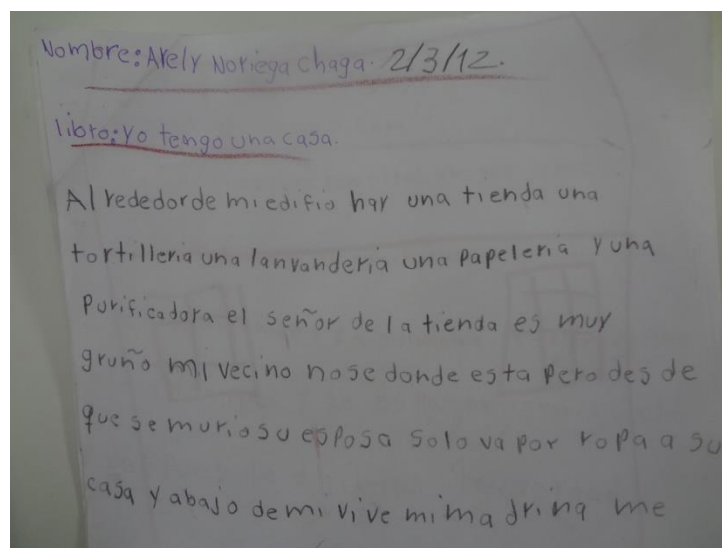 Nombre: Arely Noriega chaga. 2/3/12.
libro: Yo tengo una casa.
Al rededor de mi edifio hay una tienda una
tortilleria una lanvanderia una papeleria y una
purificadora el señor de la tienda es muy
gruño mi vecino nose donde esta pero des de
que se murio su esposa solo va por ropa a su
casa y abajo de mi vive mi madrina me